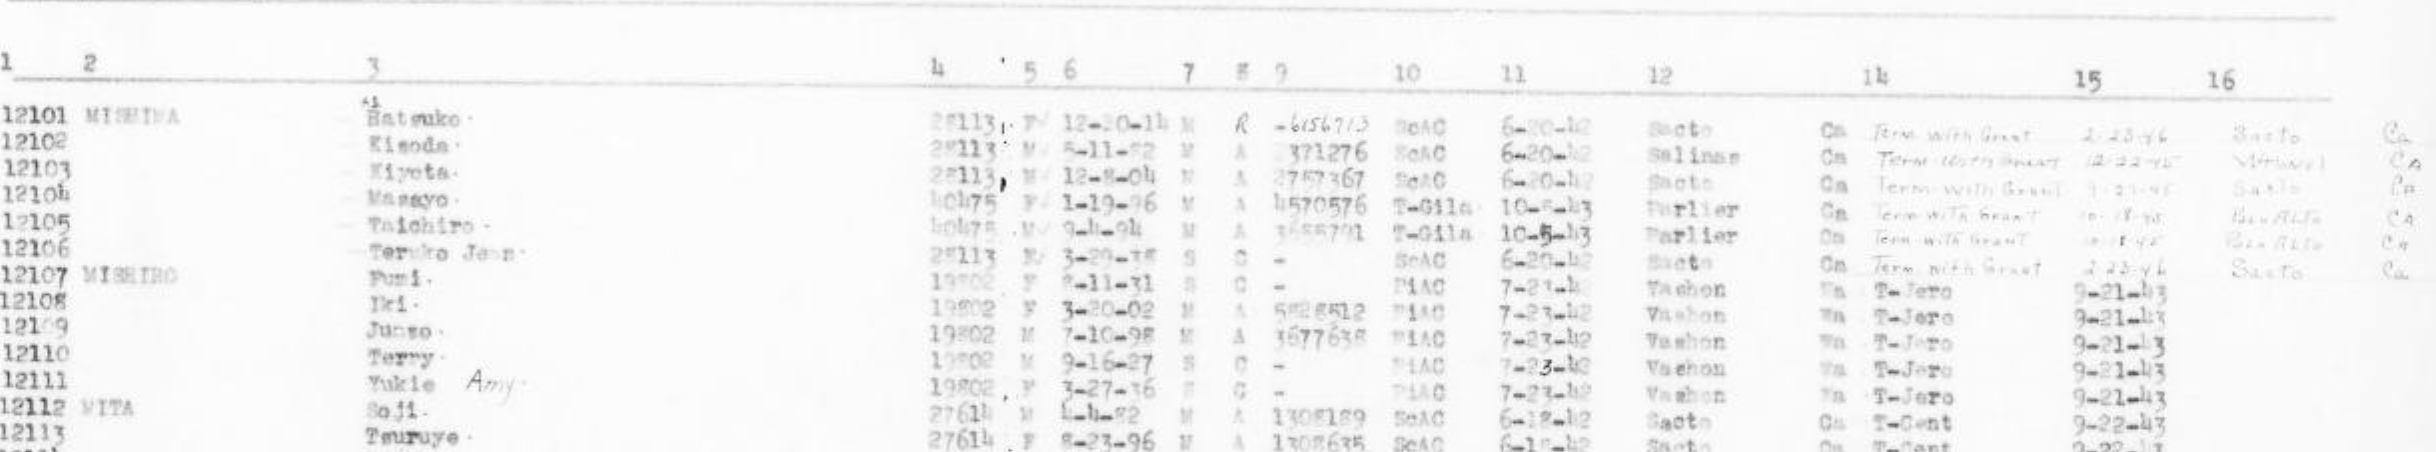 1 2 3 4 5 6 7 8 9 10 11 12 14 15 16
12101 MISHIMA Hatsuko 28113 F 12-20-14 M R -6156713 ScAC 6-20-42 Sacto Ca Term with Grant 2-23-46 Sacto Ca
12102 Kisoda 28113 M 5-11-82 M A 371276 ScAC 6-20-42 Salinas Ca Term with Grant 12-22-45 CA
12103 Kiyota 28113 M 12-8-04 M A 2757367 ScAC 6-20-42 Sacto Ca Term with Grant Sacto Ca
12104 Masayo 40475 F 1-19-96 M A 4570576 T-Gila 10-5-43 Parlier Ca Term with Grant Palo Alto CA
12105 Taichiro 40475 M 9-4-94 M A T-Gila 10-5-43 Parlier Ca Term with Grant Palo Alto Ca
12106 Teruko Jean 28113 F 3-29-38 S C - ScAC 6-20-42 Sacto Ca Term with Grant 2-23-46 Sacto Ca
12107 MISHIRO Fumi 19802 F 8-11-31 S C - PiAC 7-23-42 Vashon Wa T-Jero 9-21-43
12108 Iki 19802 F 3-20-02 M A 5828512 PiAC 7-23-42 Vashon Wa T-Jero 9-21-43
12109 Junso 19802 M 7-10-98 M A 3677638 PiAC 7-23-42 Vashon Wa T-Jero 9-21-43
12110 Terry 19802 M 9-16-27 S C - PiAC 7-23-42 Vashon Wa T-Jero 9-21-43
12111 Yukie Amy 19802 F 3-27-36 S C - PiAC 7-23-42 Vashon Wa T-Jero 9-21-43
12112 MITA Soji 27614 M 4-4-82 M A 1308189 ScAC 6-18-42 Sacto Ca T-Cent 9-22-43
12113 Tsuruye 27614 F 8-23-96 M A 1308635 ScAC 6-18-42 Sacto Ca T-Cent 9-22-43